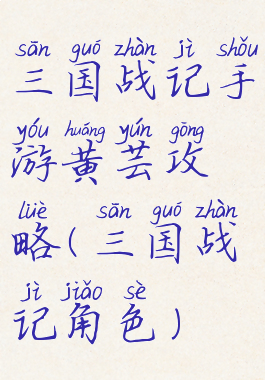 sān guó zhàn jì shǒu
三国战记手
yóu huáng yún gōng
游黄芸攻
lüè sān guó zhàn
略(三国战
jì jiǎo sè
记角色)